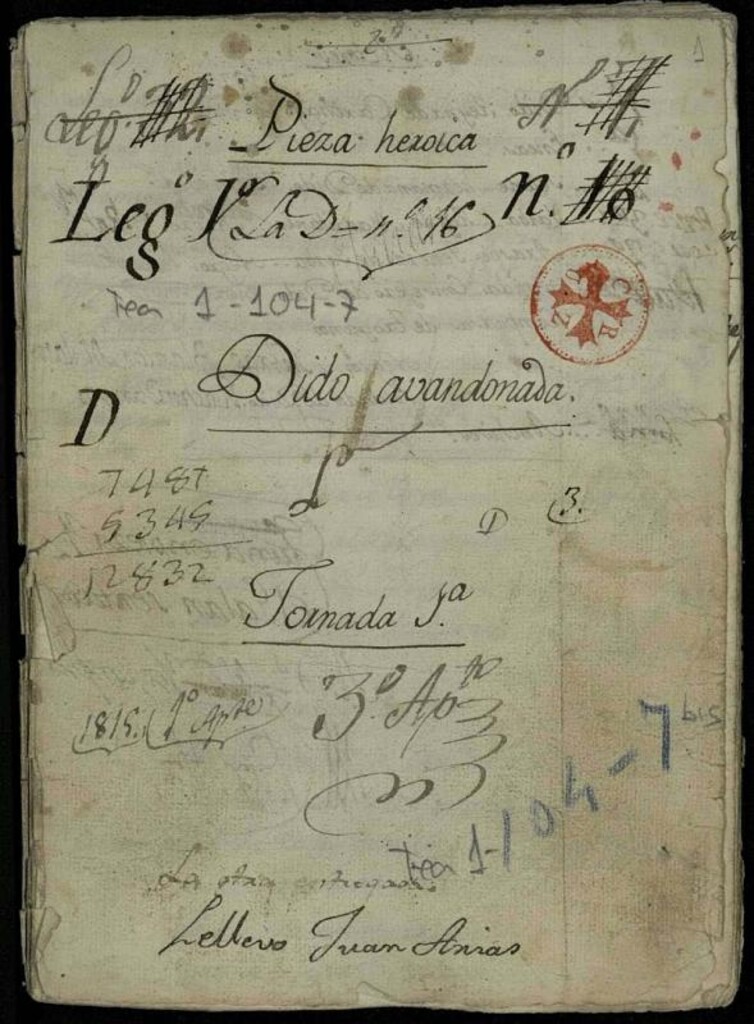 Leg.º
Nº
Pieza heroica
Leg.º 1º La D= n.º 16 n.º 16
Tea 1-104-7
Dido avandonada.
D
7487
5345
12832
D 3.
Jornada 1.ª
1815. 1º Apte 3º Apte
Tea 1-104-7 bis
La otra entregada.
Lellevo Juan Arias